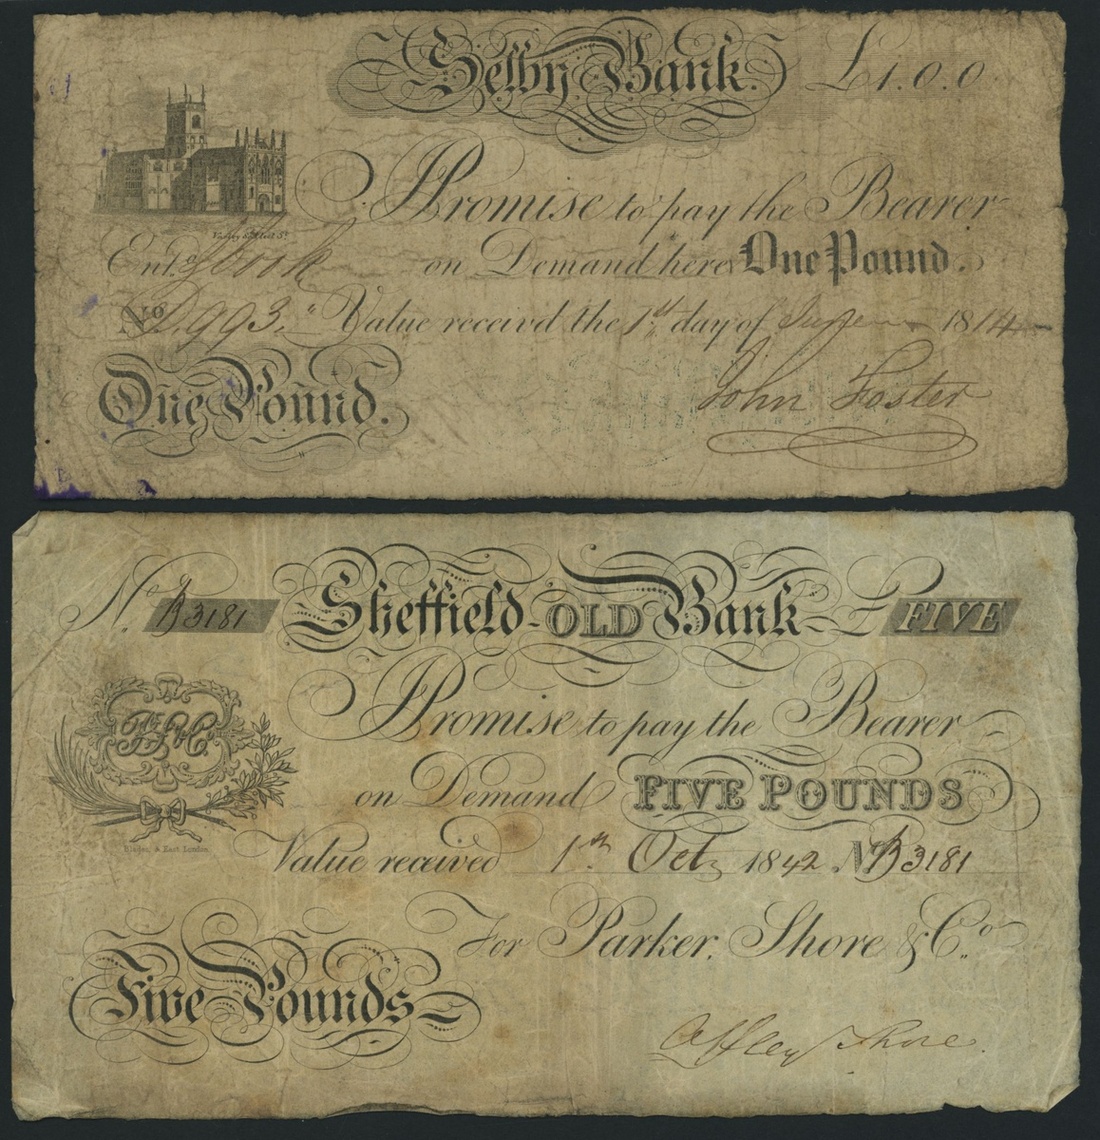 Selby Bank. £1.0.0
I Promise to pay the Bearer
Entd. on Demand here One Pound.
No. D.993. Value receivd the 1st day of June 1814
One Pound.
John Foster
No. B3181 Sheffield OLD Bank £ FIVE
I Promise to pay the Bearer
on Demand FIVE POUNDS
Blades, & East London
Value received 1st Oct. 1842 No B3181
For Parker, Shore & Co.
Five Pounds
Offley Shore.